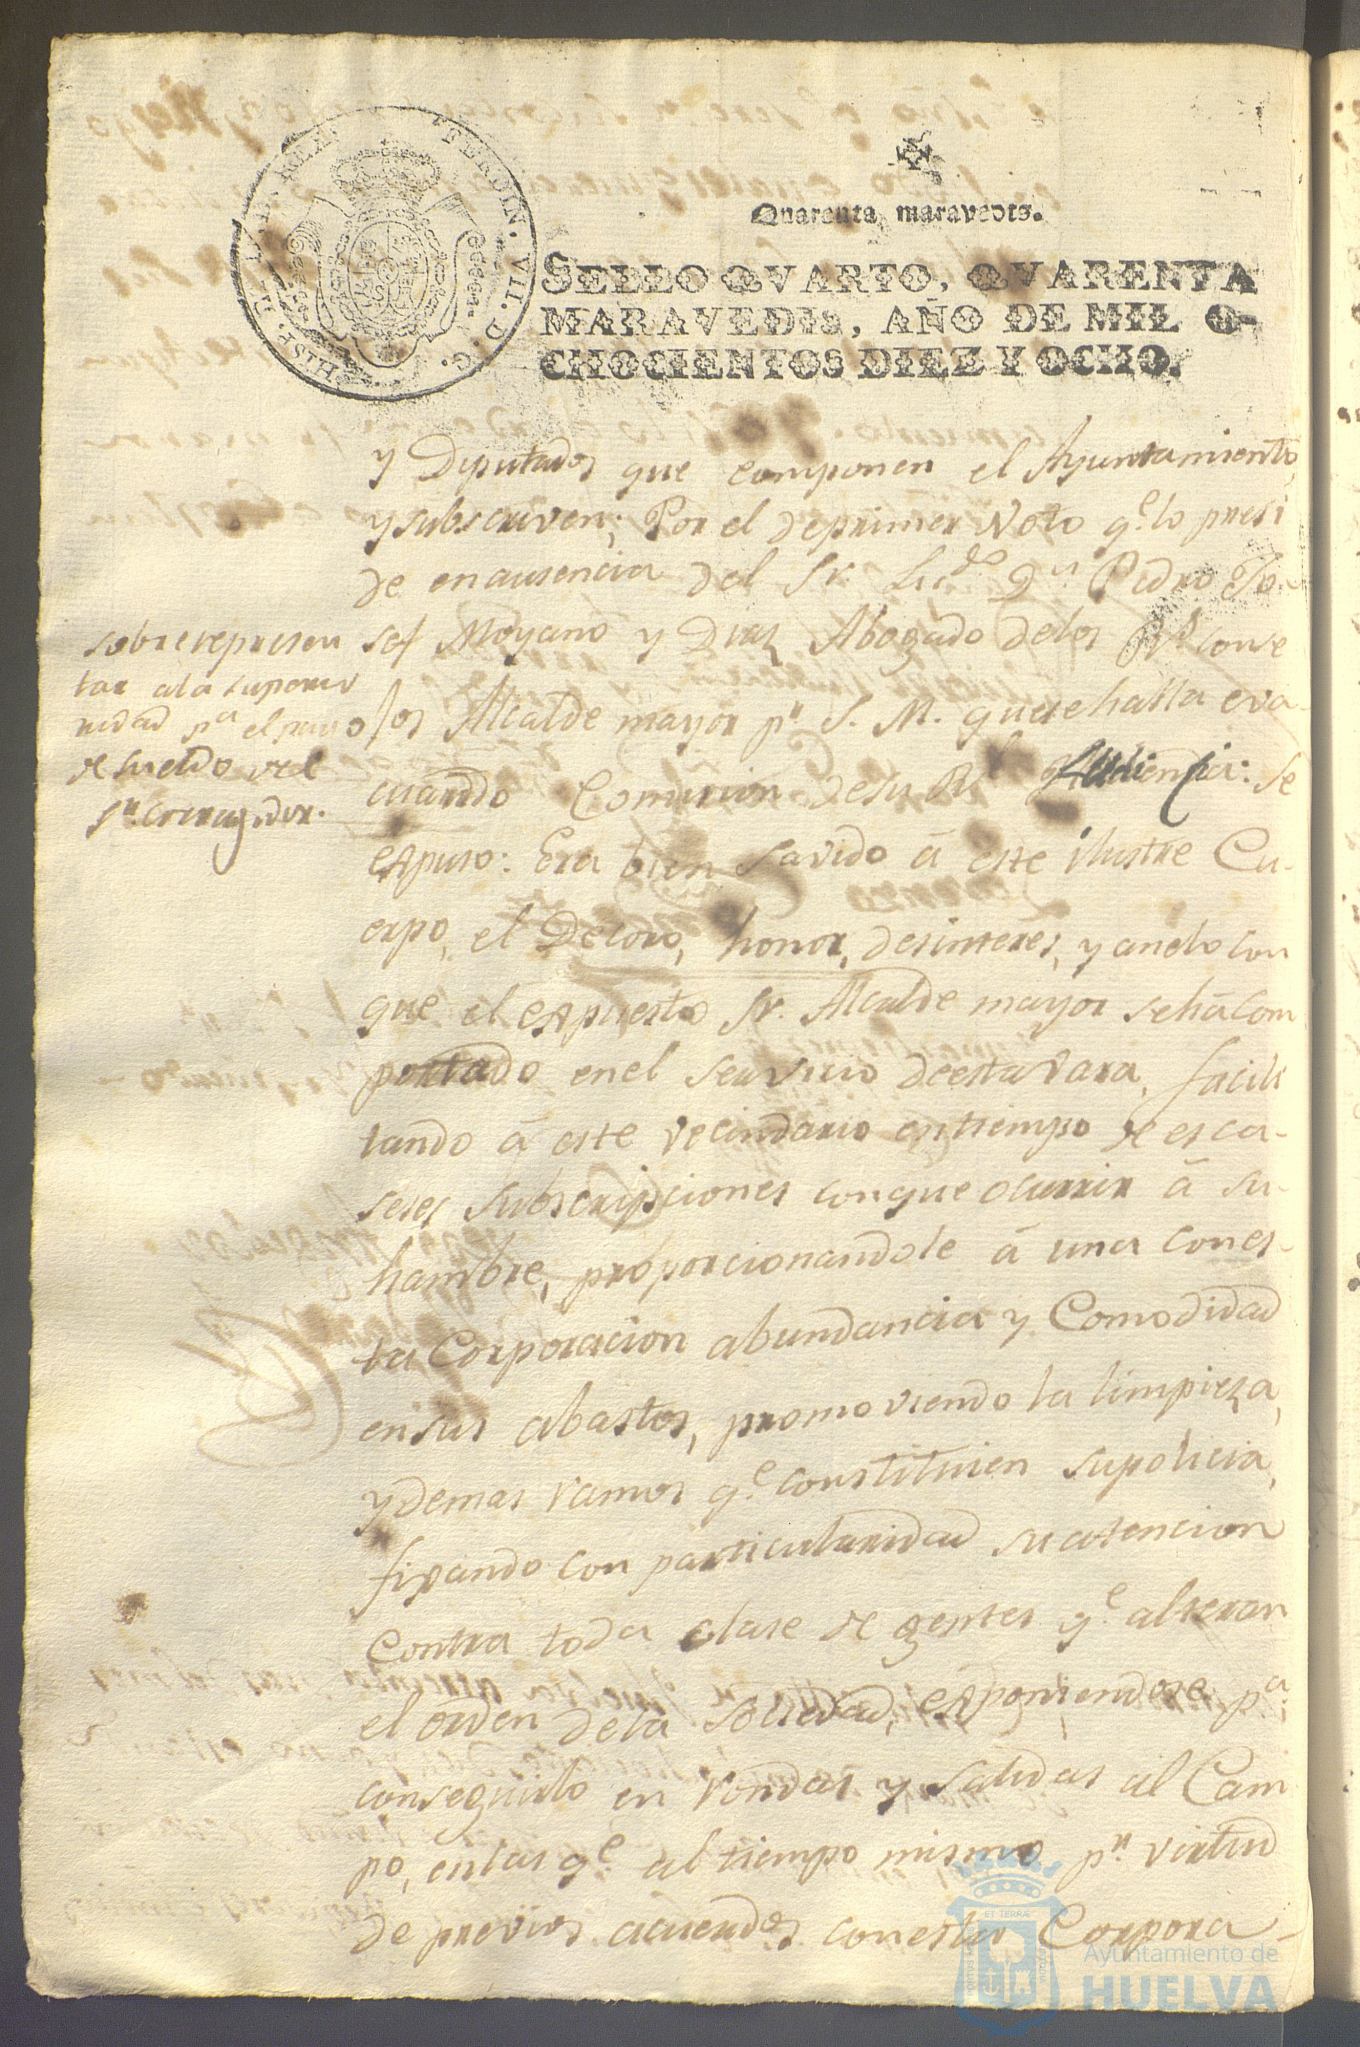 FERDIN. VII. D. G. HISP. ET IND. REX.
Quarenta maravedis.
SELLO QVARTO, QVARENTA
MARAVEDIS, AÑO DE MIL O-
CHOCIENTOS DIEZ Y OCHO.
y Diputados que componen el Ayuntamiento,
y subscriven; Por el de primer Voto q.e lo presi
de en ausencia del Sr. Lic.do D.n Pedro Jo-
sef Moyano y Diaz Abogado delos R.s Conse
jos Alcalde mayor p.r S. M. que se halla eva-
cuando Comision desu R.l Audiencia: Se
expuso: Era bien savido á este ilustre Cu-
erpo, el Decoro, honor, desinteres, y anelo con
que el expuesto Sr. Alcalde mayor se há com
portado enel servicio deesta vara, facili
tando á este vecindario entiempo de esca-
seses subscripciones conque ocurrir á su
hambre, proporcionandole á una con es-
ta Corporacion abundancia y Comodidad
ensus abastos, promoviendo la limpieza,
y demas ramos q.e constituien supolicia,
fixando con particularidad su atencion
Contra toda clase de gentes q.e alteran
el orden dela Sociedad, exponiendose p.a
conseguirlo en rondas y salidas al Cam
po, enlas q.e al tiempo mismo p.r virtud
de previos acuerdos con esta Corpora-
sobre represen
tar ala superio
ridad p.a el pago
de sueldo del
S.r corregidor.
Ayuntamiento de
HUELVA